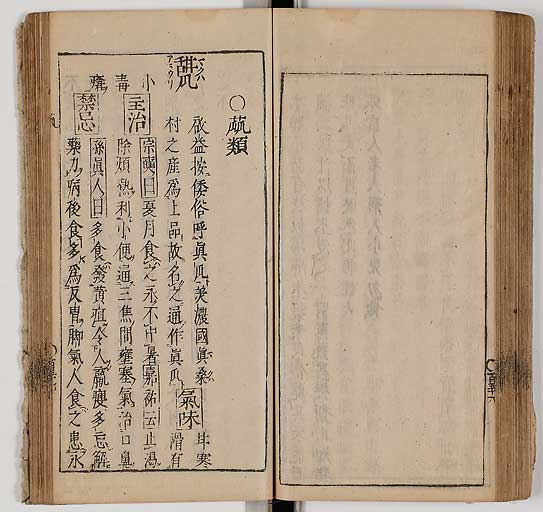 ○蓏類
甜瓜
マクハ
アマウリ
啟益按倭俗呼眞瓜美濃國眞桑
村之産爲上品故名之通作眞瓜
氣味
甘寒
滑有
小毒
主治
宗奭曰夏月食之永不中暑嘉祐云止渴
除煩熱利小便通三焦間壅塞氣治口鼻
瘡
禁忌
孫眞人曰多食發黄疸令人羸瘦多忘解
藥力病後食多爲反胃脚氣人食之患永